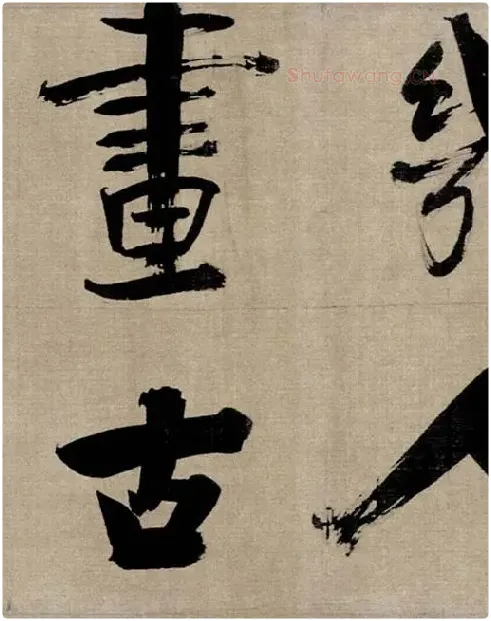 人
畫古
Shufawang.CN